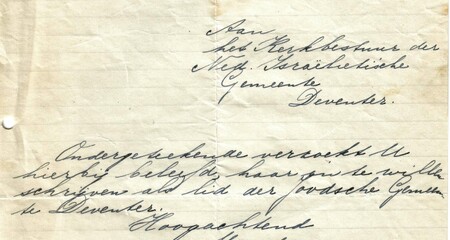 Aan
het Kerkbestuur der
Ned. Israëlietische
Gemeente
Deventer.
Ondergeteekende verzoekt U
hierbij beleefd, haar in te willen
schrijven als lid der Joodsche Gemeen
te Deventer.
Hoogachtend